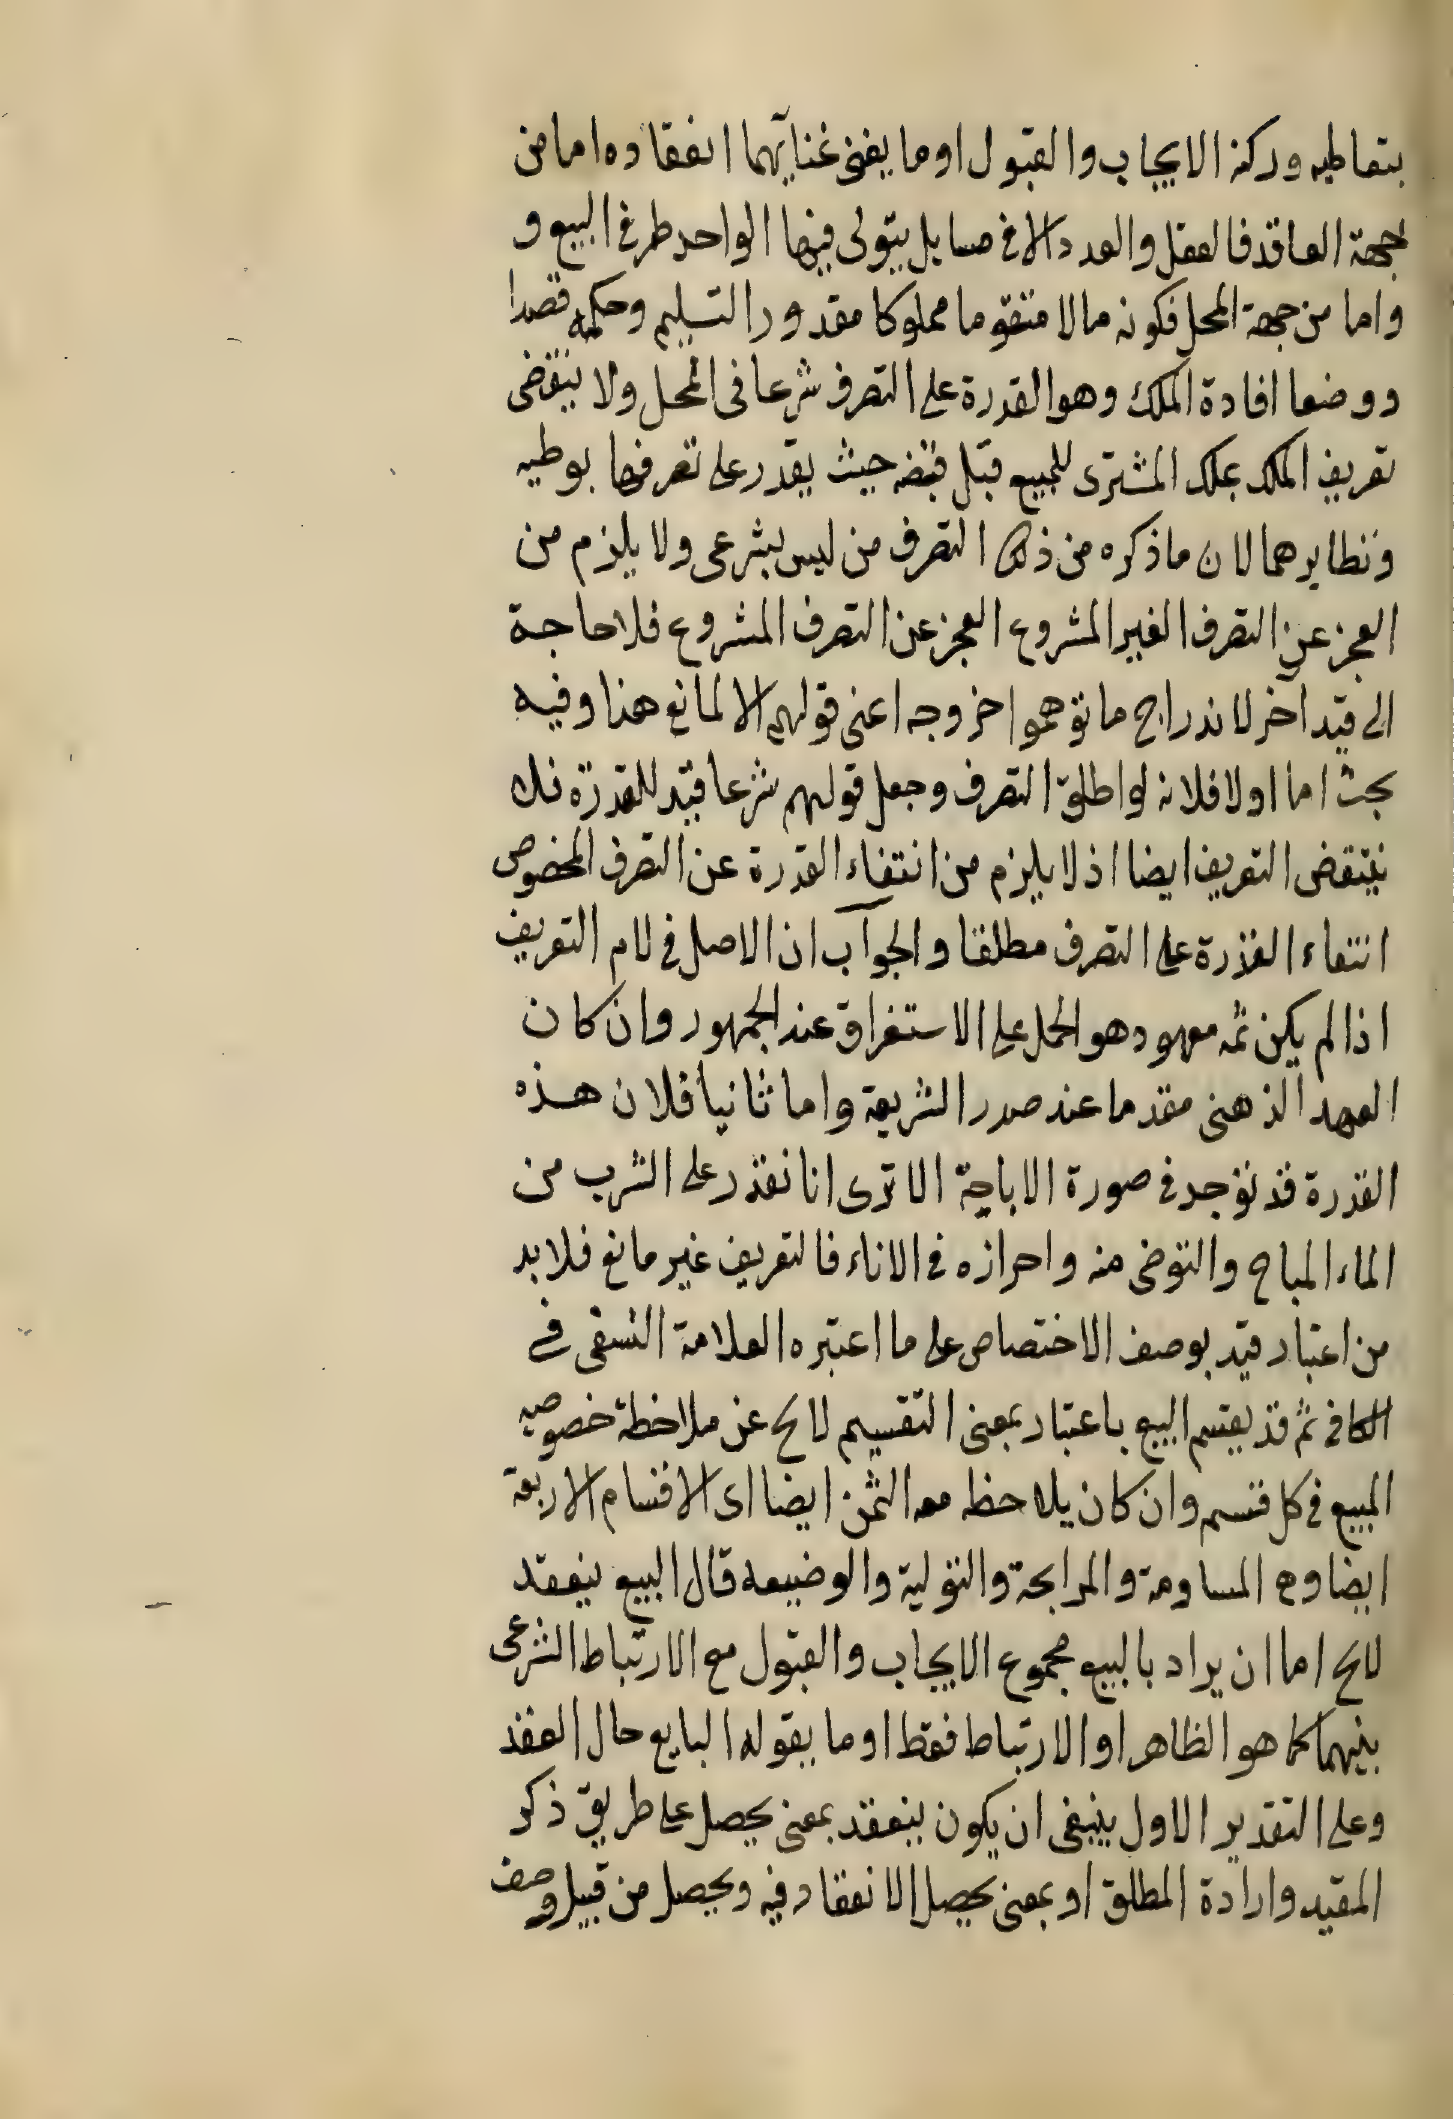 بتعاطيه وركنه الايجاب والقبول او ما يغنى غنايهما انعقاده اما من
جهة العاقد فالعقل والعدد الا فى مسايل يتولى فيها الواحد طرفى البيع و
واما من جهة المحل فكونه مالا متقوما مملوكا مقدور التسليم وحكمه قصدا
ووضعا افادة الملك وهو القدرة على التصرف شرعا فى المحل ولا ينتقض
تعريف الملك بملك المشترى للمبيع قبل قبضه حيث يقدر على تعرفها بوطيه
ونظايرهما لان ما ذكره من ذلك التصرف من ليس بشرعى ولا يلزم من
العجز عن التصرف الغير المشروع العجز عن التصرف المشروع فلا حاجة
الى قيد آخر لاندراج ما توهموا خروجه اعنى قولهم الا لمانع هذا وفيه
بحث اما اولا فلانه لو اطلق التصرف وجعل قولهم شرعا قيد للقدرة
ينتقض التعريف ايضا اذ لا يلزم من انتفاء القدرة عن التصرف المخصوص
انتفاء القدرة على التصرف مطلقا والجواب ان الاصل فى لام التعريف
اذا لم يكن ثمه معهود هو الحمل على الاستغراق عند الجمهور وان كان
العهد الذهنى مقدما عند صدر الشريعة واما ثانيا فلان هذه
القدرة قد توجد فى صورة الاباحة الا ترى انا نقدر على الشرب من
الماء المباح والتوضى منه واحرازه فى الاناء فالتعريف غير مانع فلا بد
من اعتبار قيد بوصف الاختصاص على ما اعتبره العلامة النسفى فى
الكافى ثم قد يقسم البيع باعتبار بمعنى التقسيم لا يخ عن ملاحظة خصوصيه
المبيع فى كل قسم وان كان يلاحظ معه الثمن ايضا اى الاقسام الاربعة
ايضا وهى المساومة والمرابحة والتولية والوضيعه قال البيع ينعقد
لايخ اما ان يراد بالبيع مجموع الايجاب والقبول مع الارتباط الشرعى
بينهما كما هو الظاهر او الارتباط فقط او ما يقوله البايع حال العقد
وعلى التقدير الاول ينبغى ان يكون ينعقد بمعنى يحصل على طريق ذكر
المقيد وارادة المطلق او بمعنى يحصل الانعقاد فيه ويحصل من قبيل وصف